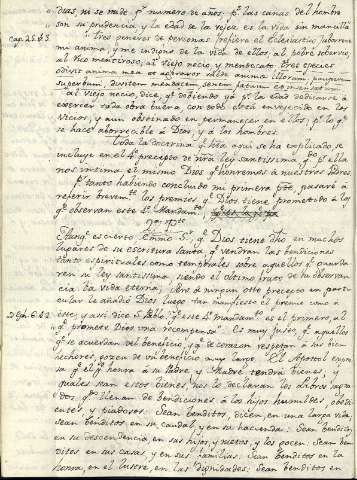 dias, ni se mide pr. numero de años, pr. las canas del hombre
son su prudencia y la edad de la vejez es la vida sin mancilla
cap. 25. 63. Tres generos de personas, refiere el Eclesiastico, aborreció
mi anima, y me indigno de la vida de ellos, al pobre sobervio,
al rico mentiroso, al viejo necio, y mentecato tres species
odivit anima mea et aggravor valde animæ illorum, pauperem
superbum, divitem mendacem, senem fatuum et insensatum
al viejo necio dice, pr. debiendo ya pr. la edad dedicarse à
exercer toda obra buena, con todo està envejecido en los
vicios, y aun obstinado en permanecer en ellos, pr. lo qe.
se hace aborrecible à Dios, y à los hombres.
Toda la doctrina qe. hta aqui se ha explicado se
incluye en el 4º precepto de ntra ley santissima qdo. pr. ella
nos intima el mismo Dios qe. honremos à nuestros Padres
pr. tanto habiendo concluido mi primera pte. pasaré à
referir brevemte. los premios qe. Dios tiene prometido à los
qe. observan este Sto. Mandamto.
Aunqe. es cierto qe. Dios tiene dho en muchos
lugares de su escritura santa qe. vendran las bendiciones
tanto espirituales como temporales sobre aquellos qe. guarda-
ren su ley santissima siendo el ultimo fruto de su observan-
cia la vida eterna; Pero à ningun otro precepto en parti-
cular le añadió Dios luego tan manifiesto el premio como à
ad Ephes. 6. 2. este, y asi dice S. Pablo qe. este 4º mandamto. es el primero, al
qe. promete Dios una recompensa. Es muy justo, qe. aquellos
qe. se acuerdan del beneficio, y qe. de corazon respetan à sus bien
hechores, gozen de un beneficio muy largo. El Apostol expre-
sa qe. el qe. honra à su Padre, y Madre tendrá bienes, y
quales sean estos bienes, nos lo declaran los libros sagra-
dos qe. llenan de bendiciones à los hijos humildes, obedi-
entes y piadosos. Sean benditos, dicen, en una larga vida
sean benditos en su caudal, y en su hacienda: Sean benditos,
en su descendencia, en sus hijos, y nietos, y los gocen: Sean ben-
ditos en sus casas, y en sus familias: Sean benditos en la
honra, en el lustre, en las dignidades: Sean benditos en